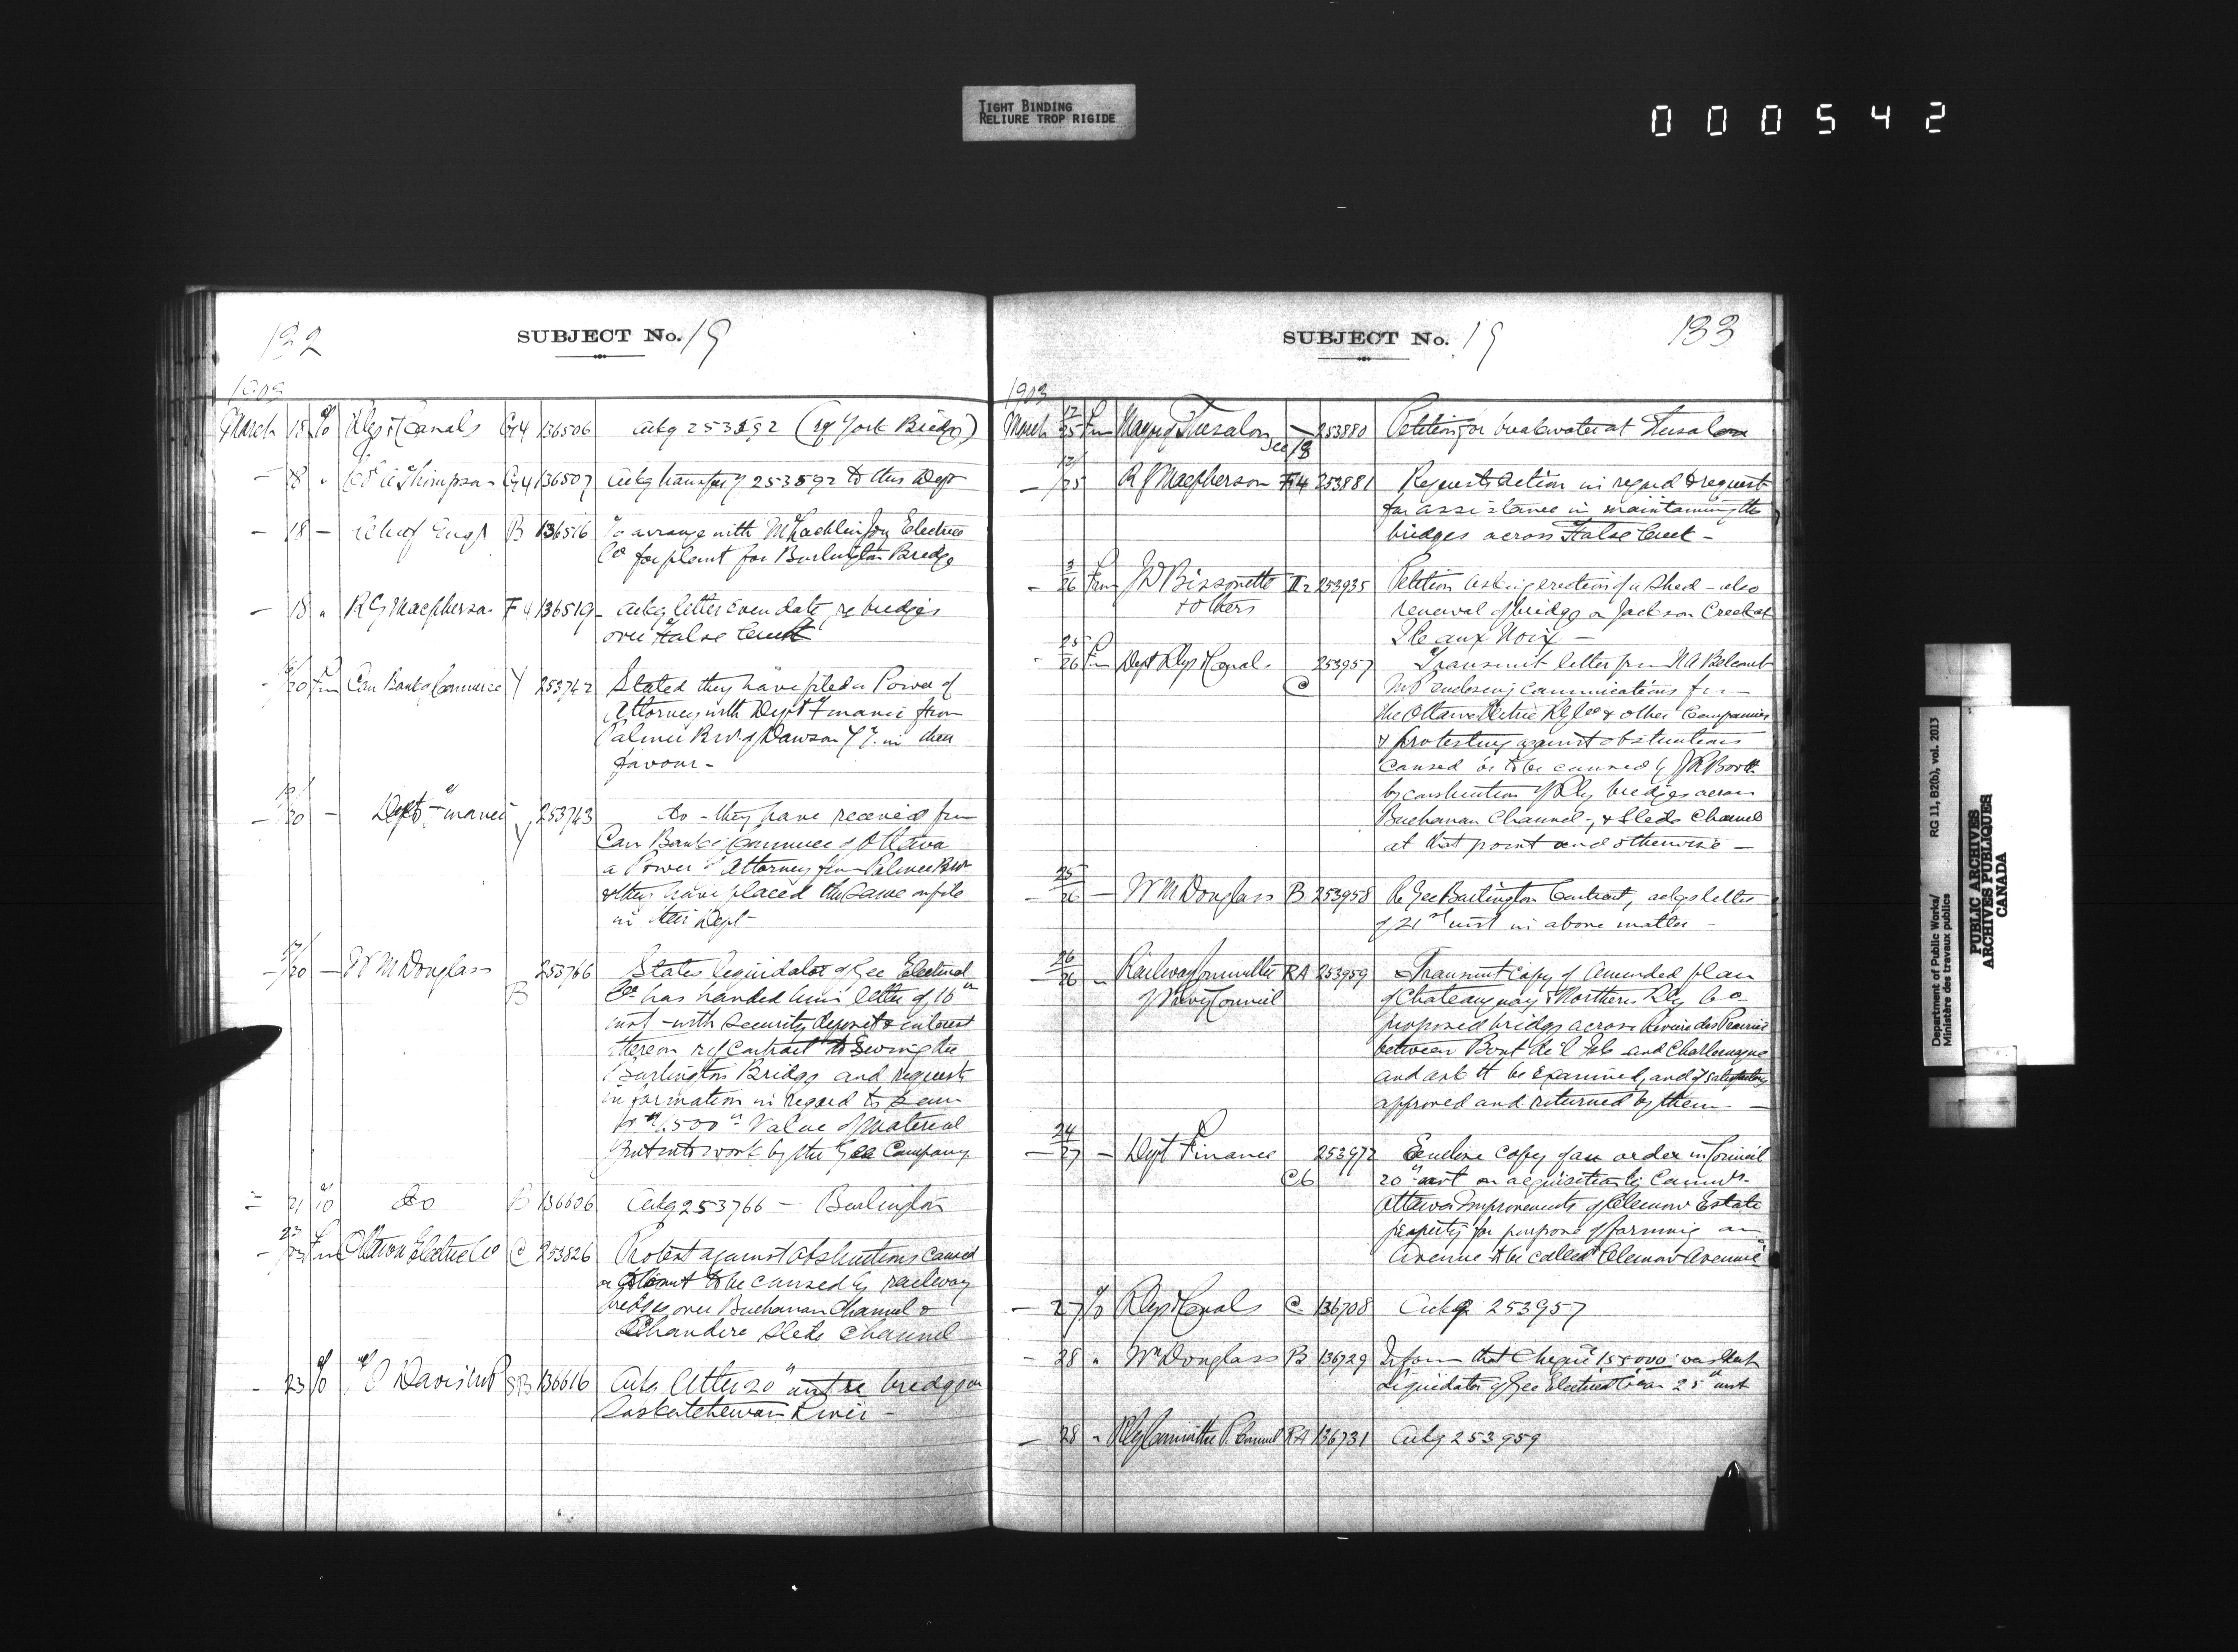 TIGHT BINDING
RELIURE TROP RIGIDE
000542
132
SUBJECT No. 19
1903
March 18 To Rlys & Canals G4 136506 ackg 253592 (re York Bridge)
— 18 " Thompson G4 136507 ackg transfer of 253592 to this Dept
— 18 — Chief Engr B 136516 To arrange with Electric
Co for plant for Burlington Bridge
— 18 " R G Macpherson F4 136519 ackg letter even date re bridges
over False Creek
20 Frm Can Bank of Commerce Y 253742 Stated they have filed a Power of
Attorney with Dept Finance from
Palmer Bros of Dawson Y.T. in their
favour -
19/20 — Dept Finance Y 253743 do - they have received frm
Can Bank of Commerce of Ottawa
a Power of Attorney frm Palmer Bros
& they have placed the same on file
in their Dept
20 — W M Douglass B 253766 States liquidator of Gee Electrical
Co has handed him letter of 16th
inst - with security deposit & interest
thereon re contract to swing the
Burlington Bridge and requests
information in regard to sum
of $1,500 value of material
put into work by the Gee Company
— 21 To do B 136606 Ackg 253766 — Burlington
23 Frm Ottawa Electric Co C 253826 Protest against obstructions caused
or about to be caused by railway
bridges over Buchanan Channel &
Chaudiere Slide Channel
— 23 To T O Davis M P SB 136616 Ackg letter 20th inst re bridge on
Saskatchewan River -
SUBJECT No. 19
133
1903
March 12/25 Frm Mayor of Thessalon See 18 253880 Petition for breakwater at Thessalon
— 17/25 R G Macpherson F4 253881 Requests action in regard to request
for assistance in maintaining the
bridges across False Creek -
- 3/26 Frm J D Bissonette 253935 Petition asking erection of a shed - also
& others renewal of bridge on Jackson Creek at
Ile aux Noix —
- 25/26 Frm Dept Rlys & Canals C 253957 Transmit letter frm N A Belcourt
M P enclosing communications frm
the Ottawa Electric Rly Co & other Companies
& protesting against obstructions
caused or to be caused by J R Booth
by construction of Rly bridges across
Buchanan Channel, & Slide Channel
at that point and otherwise —
— 25/26 — W M Douglass B 253958 Re Gee Burlington Contract, ackgs letter
of 21st inst in above matter -
— 26/26 " Railway Committee RA 253959 Transmit copy of amended plan
of Privy Council of Chateauguay & Northern Rly Co
proposed bridge across Riviere des Prairies
between Bout de l'Isle and Charlemagne
and ask it be examined, and if satisfactory
approved and returned by them —
— 24/27 — Dept Finance C6 253972 Enclose copy of an order in Council
20th inst on acquisition by Commrs
Ottawa Improvements of Clemow Estate
property for purpose of forming an
avenue to be called "Clemow Avenue"
— 27 To Rlys & Canals C 136708 Ackg 253957
- 28 " Wm Douglass B 136729 Inform that cheque was sent
Liquidator of Gee Electrical Co on 25th inst
— 28 " Rly Committee P. Council RA 136731 Ackg 253959
Department of Public Works/
Ministère des travaux publics
RG 11, B2(b), vol. 2013
PUBLIC ARCHIVES
ARCHIVES PUBLIQUES
CANADA